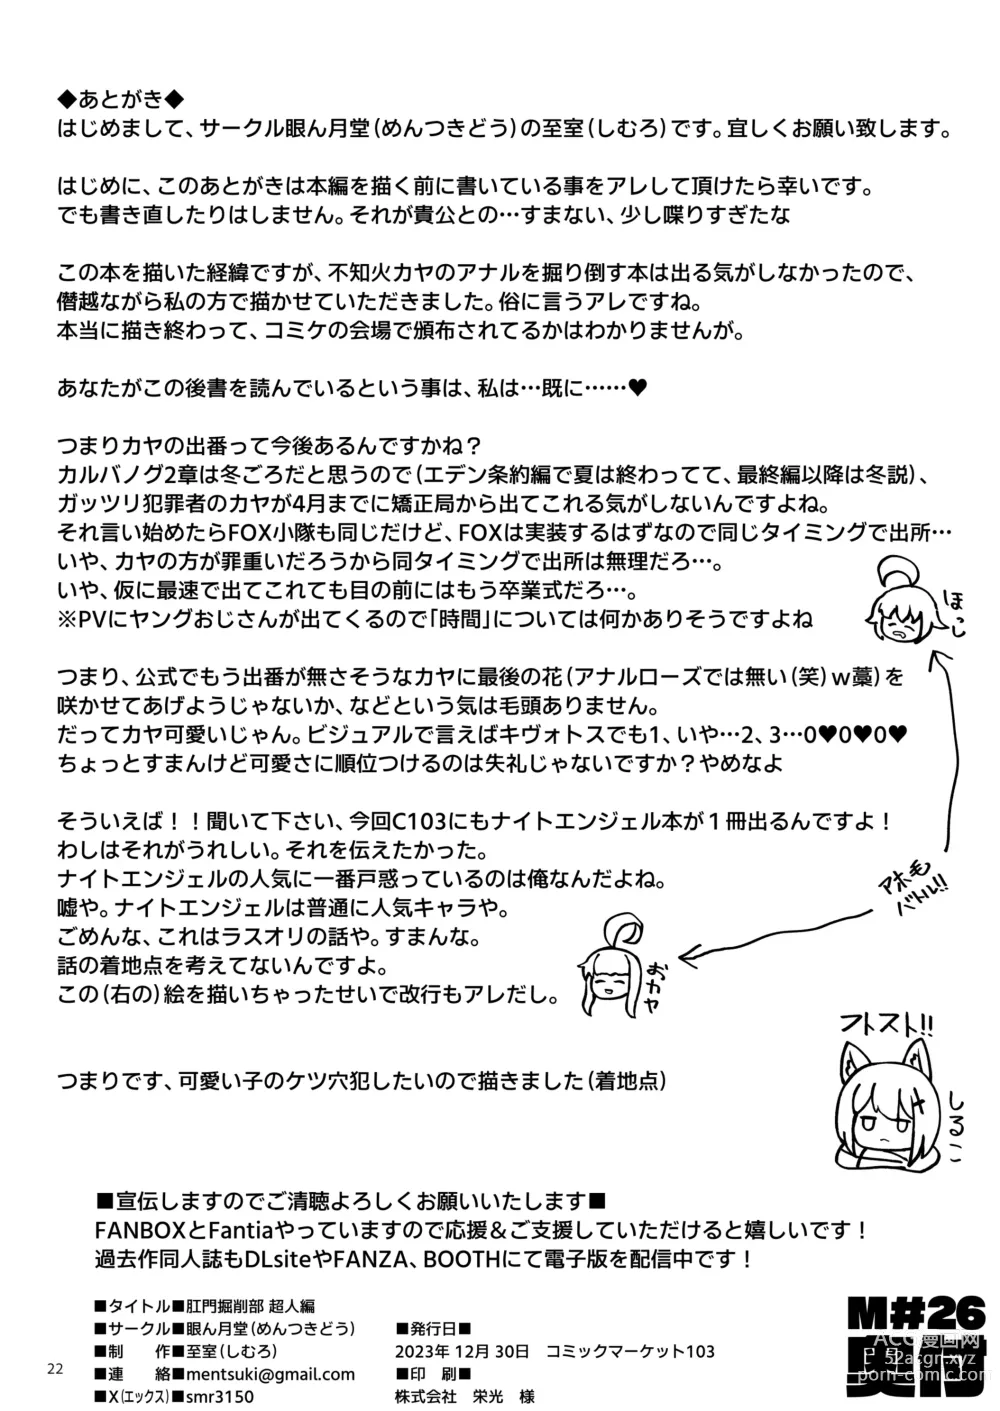 ◆あとがき◆
はじめまして、サークル眼ん月堂（めんつきどう）の至室（しむろ）です。宜しくお願い致します。
はじめに、このあとがきは本編を描く前に書いている事をアレして頂けたら幸いです。
でも書き直したりはしません。それが貴公との…すまない、少し喋りすぎたな
この本を描いた経緯ですが、不知火カヤのアナルを掘り倒す本は出る気がしなかったので、
僭越ながら私の方で描かせていただきました。俗に言うアレですね。
本当に描き終わって、コミケの会場で頒布されてるかはわかりませんが。
あなたがこの後書を読んでいるという事は、私は…既に……♥
つまりカヤの出番って今後あるんですかね？
カルバノグ2章は冬ごろだと思うので（エデン条約編で夏は終わってて、最終編以降は冬説）、
ガッツリ犯罪者のカヤが4月までに矯正局から出てこれる気がしないんですよね。
それ言い始めたらFOX小隊も同じだけど、FOXは実装するはずなので同じタイミングで出所…
いや、カヤの方が罪重いだろうから同タイミングで出所は無理だろ…。
いや、仮に最速で出てこれても目の前にはもう卒業式だろ…。
※PVにヤングおじさんが出てくるので「時間」については何かありそうですよね
ほっし
つまり、公式でもう出番が無さそうなカヤに最後の花（アナルローズでは無い（笑）ｗ藁）を
咲かせてあげようじゃないか、などという気は毛頭ありません。
だってカヤ可愛いじゃん。ビジュアルで言えばキヴォトスでも1、いや…2、3…0♥0♥0♥
ちょっとすまんけど可愛さに順位つけるのは失礼じゃないですか？やめなよ
そういえば！！聞いて下さい、今回C103にもナイトエンジェル本が１冊出るんですよ！
わしはそれがうれしい。それを伝えたかった。
ナイトエンジェルの人気に一番戸惑っているのは俺なんだよね。
嘘や。ナイトエンジェルは普通に人気キャラや。
ごめんな、これはラスオリの話や。すまんな。
話の着地点を考えてないんですよ。
この（右の）絵を描いちゃったせいで改行もアレだし。
アホ毛
バトル!!
おカヤ
フトスト!!
しるこ
つまりです、可愛い子のケツ穴犯したいので描きました（着地点）
■宣伝しますのでご清聴よろしくお願いいたします■
FANBOXとFantiaやっていますので応援＆ご支援していただけると嬉しいです！
過去作同人誌もDLsiteやFANZA、BOOTHにて電子版を配信中です！
■タイトル■肛門掘削部 超人編
■サークル■眼ん月堂（めんつきどう）
■制　作■至室（しむろ）
■連　絡■mentsuki@gmail.com
■X（エックス）■smr3150
■発行日■
2023年 12月 30日　コミックマーケット103
■印　刷■
株式会社　栄光　様
M#26
奥付
ACG漫画网
52acgn.xyz
porn-comic.com
22